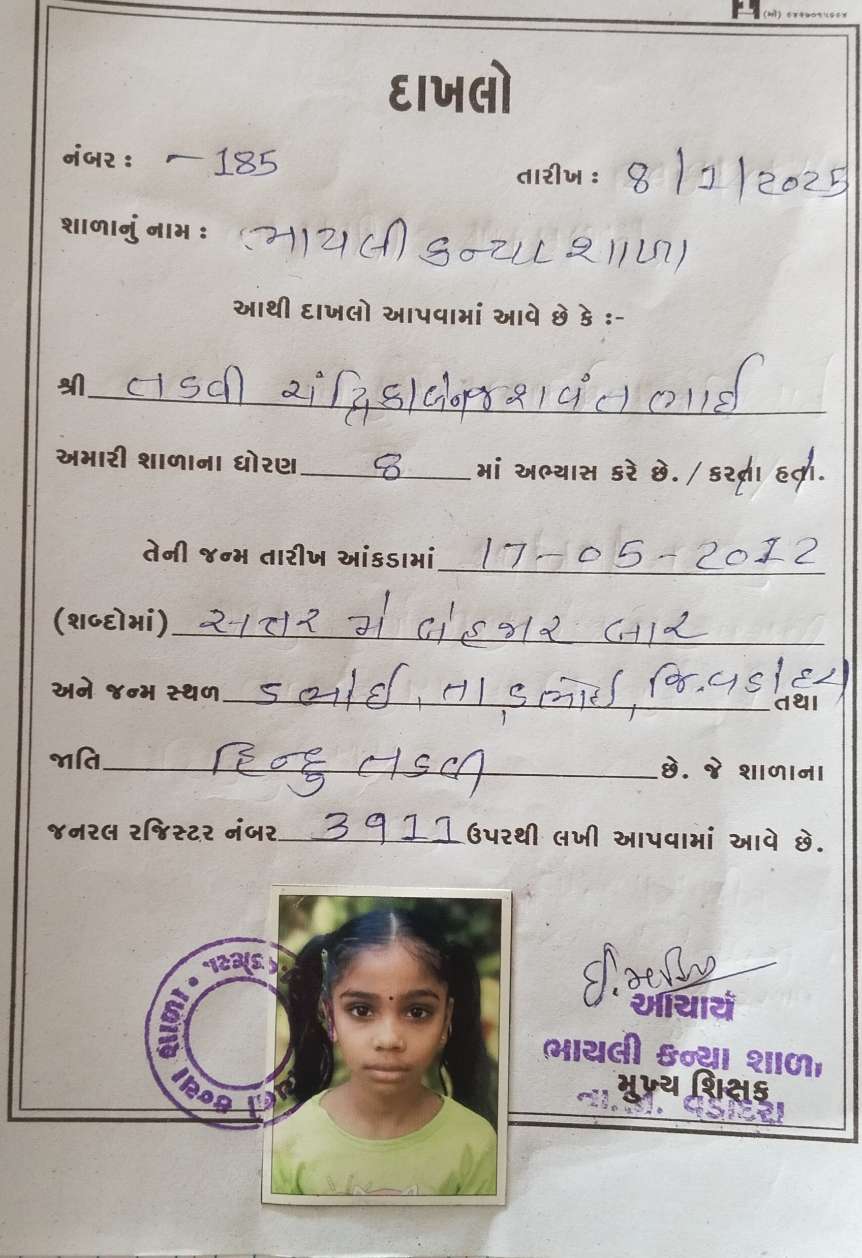 દાખલો
નંબર : - 185
તારીખ : 8/1/2025
શાળાનું નામ : ભાયલી કન્યા શાળા
આથી દાખલો આપવામાં આવે છે કે :-
શ્રી તડવી ચંદ્રિકાબેન જશવંતભાઈ
અમારી શાળાના ધોરણ 8 માં અભ્યાસ કરે છે. / કરતા હતા.
તેની જન્મ તારીખ આંકડામાં 17-05-2012
(શબ્દોમાં) સત્તર મે બેહજાર બાર
અને જન્મ સ્થળ ડભોઈ, તા, ડભોઈ, જિ. વડોદરા તથા
જાતિ હિન્દુ તડવી છે. જે શાળાના
જનરલ રજિસ્ટર નંબર 3911 ઉપરથી લખી આપવામાં આવે છે.
આચાર્ય
ભાયલી કન્યા શાળા
મુખ્ય શિક્ષક
તા.જી. વડોદરા
કન્યા શાળા